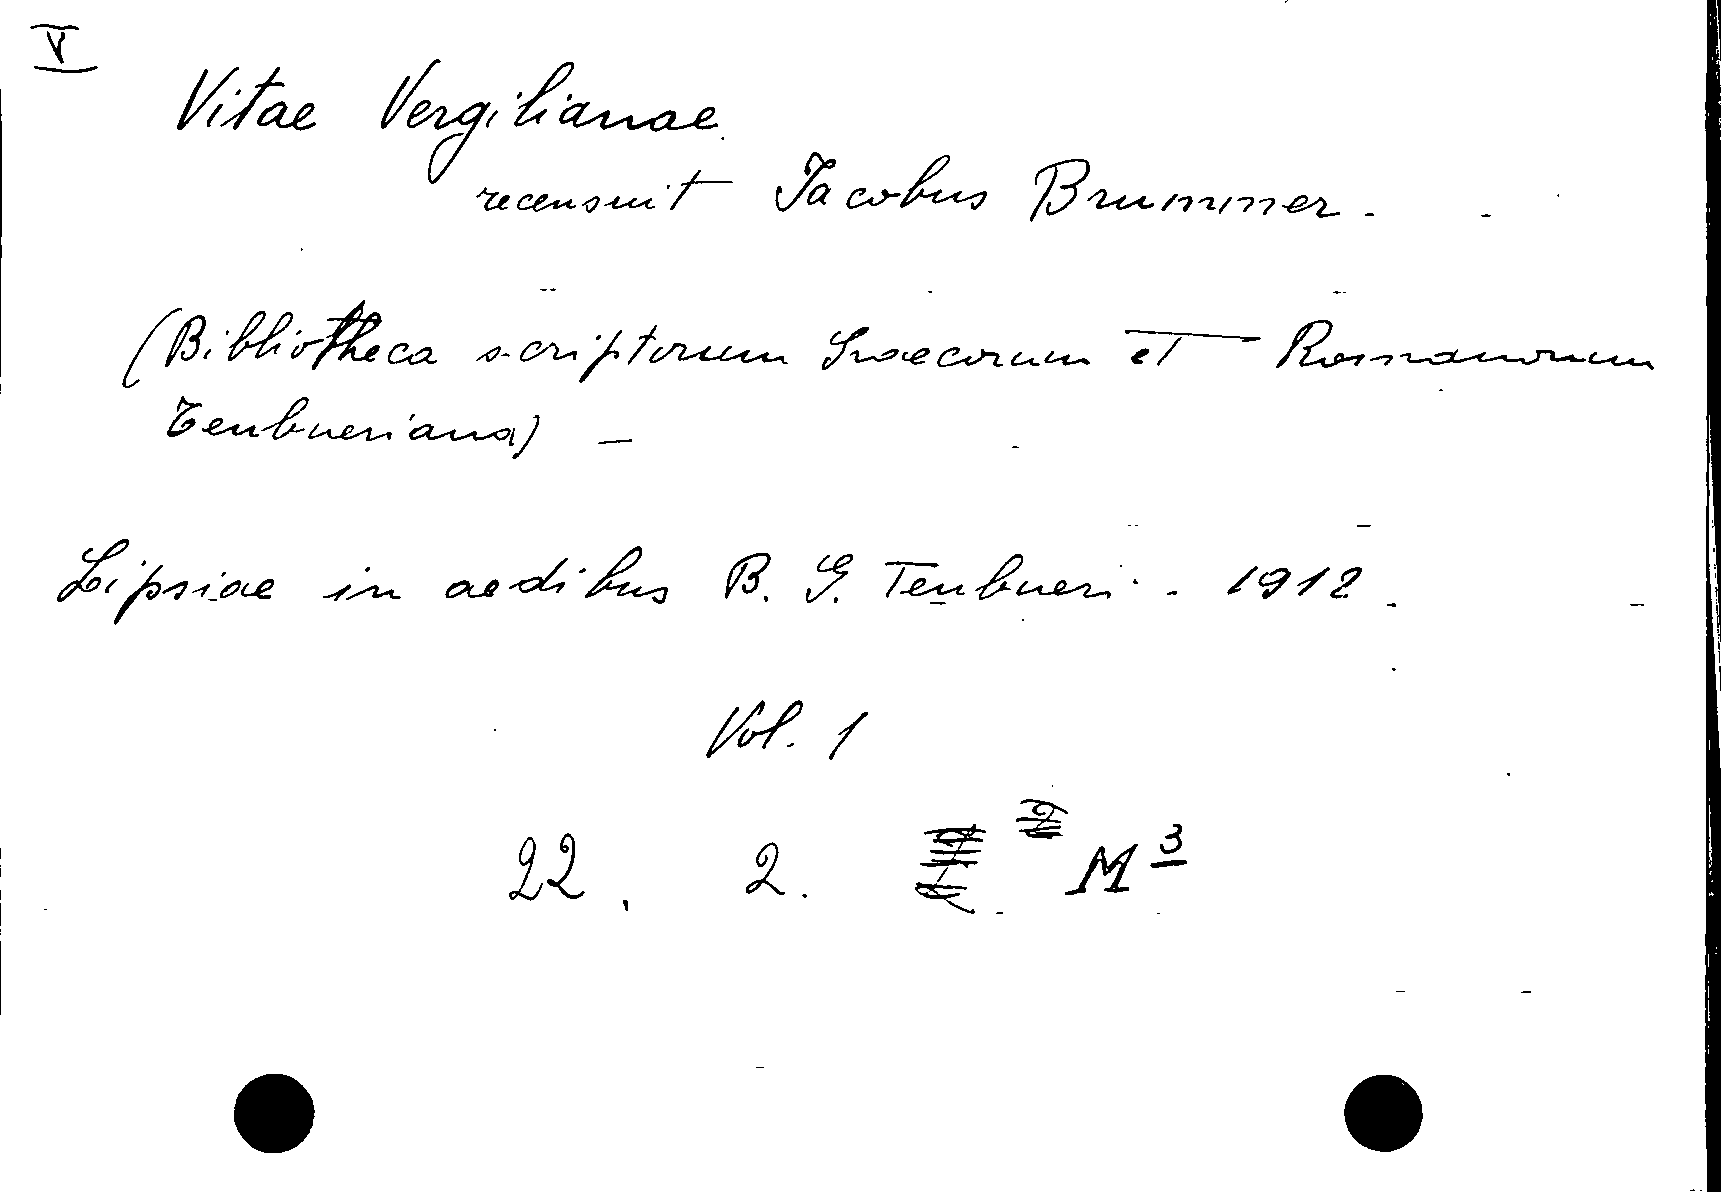 V
Vitae Vergilianae
recensuit Iacobus Brummer.
(Bibliotheca scriptorum Graecorum et Romanorum
Teubneriana) —
Lipsiae in aedibus B. G. Teubneri. 1912.
Vol. 1
22. 2. M 3